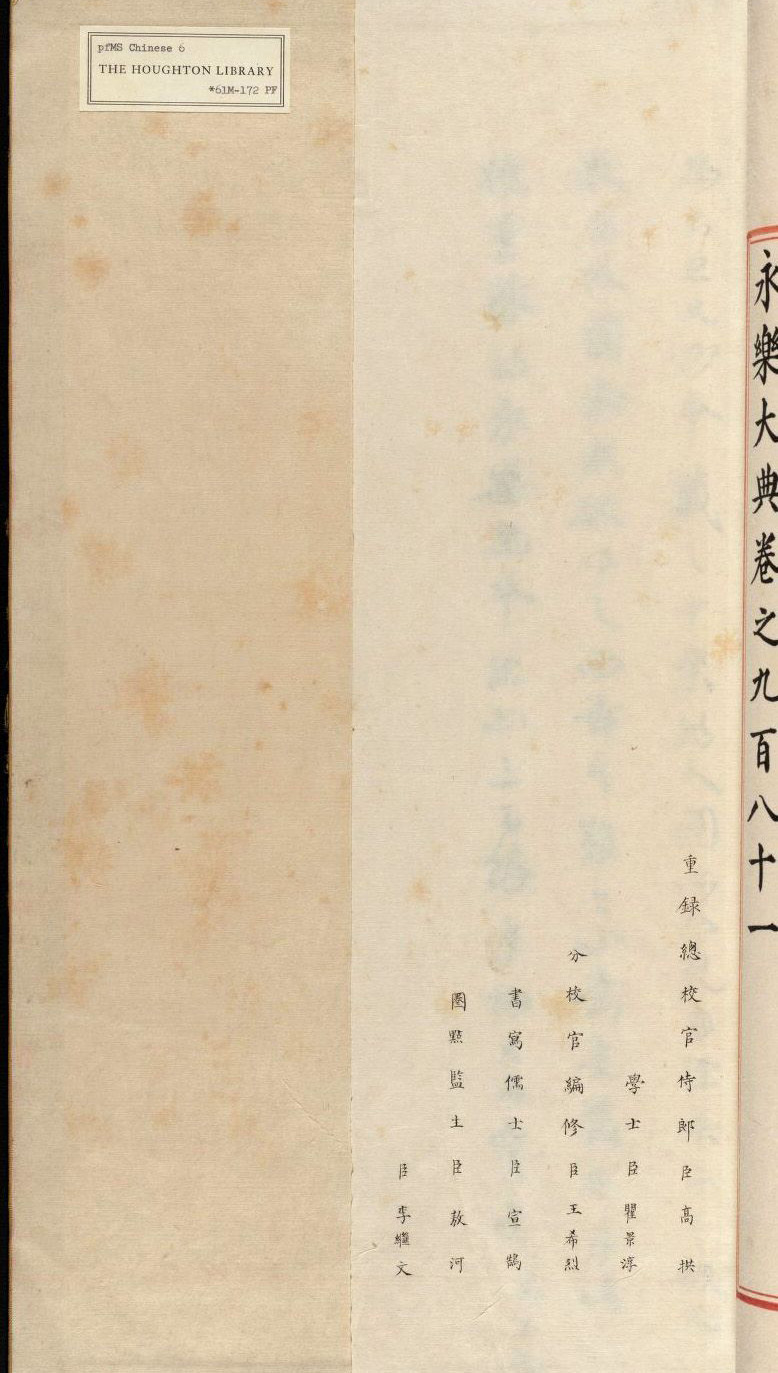 永樂大典卷之九百八十一
重録總校官侍郎臣高拱
學士臣瞿景淳
分校官編修臣王希烈
書寫儒士臣宣鵠
圈點監生臣敖河
臣李繼文
pfMS Chinese 6
THE HOUGHTON LIBRARY
*61M-172 PF